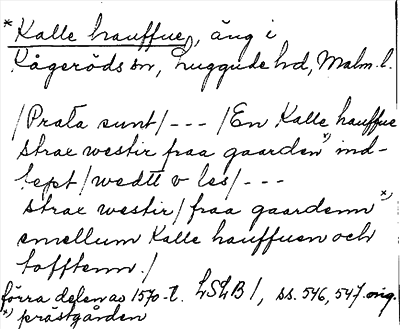 *Kalle hauffue, äng i
Kågeröds sn, Luggude hd, Malm. l.
/Prata sunt/ - - - /En Kalle hauffue
strax westir fraa gaarden *) ind-
lept / wedtt v les/ - - -
strax westir / fraa gaardenn *)
emellum Kalle hauffuen och
tofftenn./
förra delen av 1570-t. LSLB 1, ss. 546, 547. orig.
*) prästgården